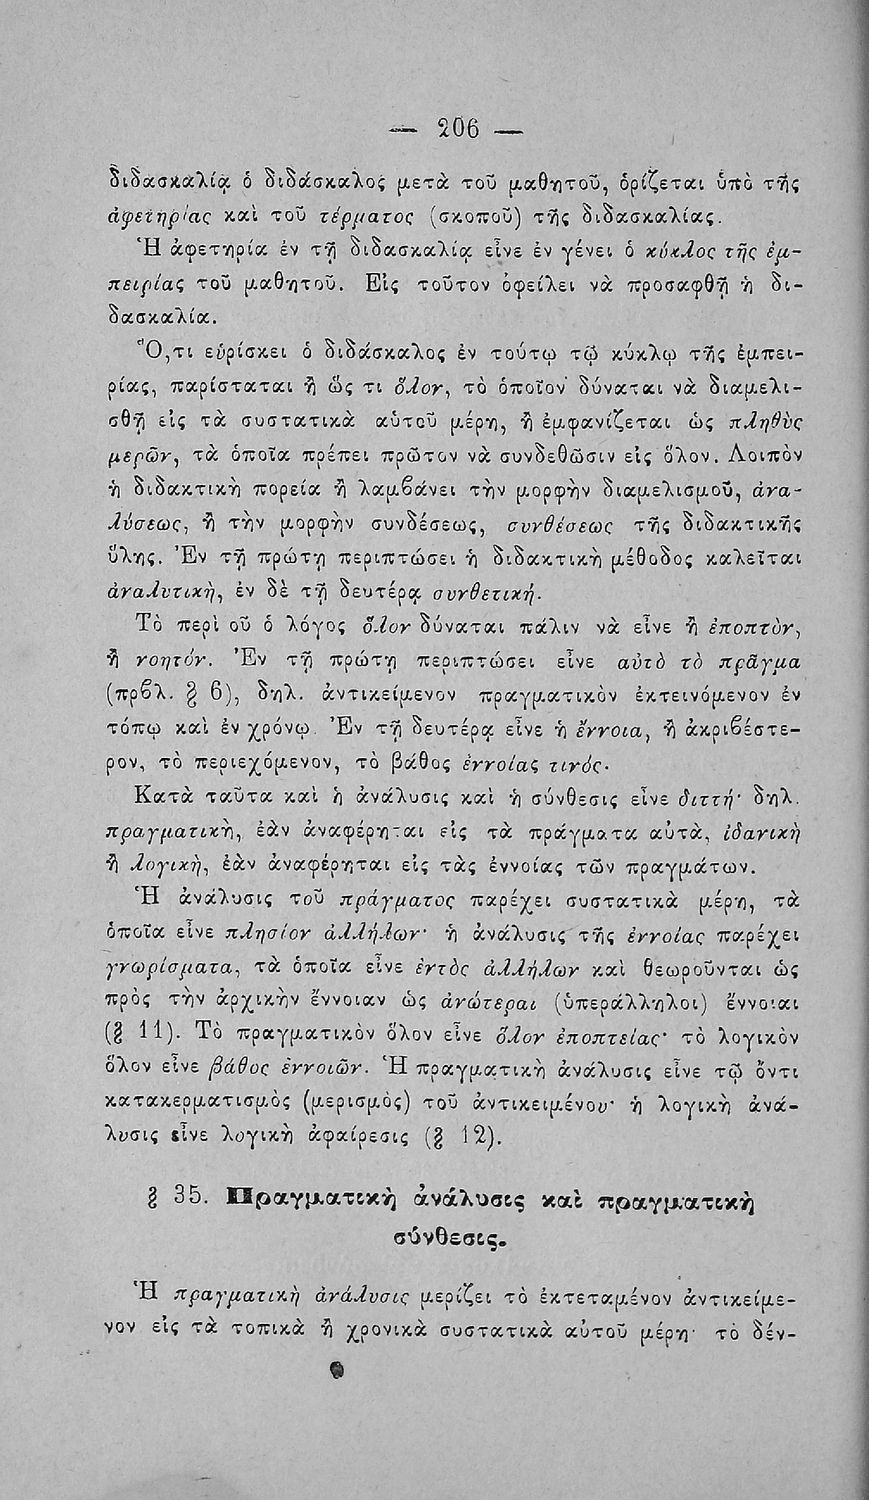 — 206 —
διδασκαλίᾳ ὁ διδάσκαλος μετὰ τοῦ μαθητοῦ, ὁρίζεται ὑπὸ τῆς
ἀφετηρίας καὶ τοῦ τέρματος (σκοποῦ) τῆς διδασκαλίας.
Ἡ ἀφετηρία ἐν τῇ διδασκαλίᾳ εἶνε ἐν γένει ὁ κύκλος τῆς ἐμ-
πειρίας τοῦ μαθητοῦ. Εἰς τοῦτον ὀφείλει νὰ προσαφθῇ ἡ δι-
δασκαλία.
Ὅ,τι εὑρίσκει ὁ διδάσκαλος ἐν τούτῳ τῷ κύκλῳ τῆς ἐμπει-
ρίας, παρίσταται ἢ ὥς τι ὅλον, τὸ ὁποῖον δύναται νὰ διαμελι-
σθῇ εἰς τὰ συστατικὰ αὑτοῦ μέρη, ἢ ἐμφανίζεται ὡς πληθὺς
μερῶν, τὰ ὁποῖα πρέπει πρῶτον νὰ συνδεθῶσιν εἰς ὅλον. Λοιπὸν
ἡ διδακτικὴ πορεία ἢ λαμβάνει τὴν μορφὴν διαμελισμοῦ, ἀνα-
λύσεως, ἢ τὴν μορφὴν συνδέσεως, συνθέσεως τῆς διδακτικῆς
ὕλης. Ἐν τῇ πρώτῃ περιπτώσει ἡ διδακτικὴ μέθοδος καλεῖται
ἀναλυτικὴ, ἐν δὲ τῇ δευτέρᾳ συνθετική.
Τὸ περὶ οὗ ὁ λόγος ὅλον δύναται πάλιν νὰ εἶνε ἢ ἐποπτὸν,
ἢ νοητόν. Ἐν τῇ πρώτῃ περιπτώσει εἶνε αὐτὸ τὸ πρᾶγμα
(πρβλ. § 6), δηλ. ἀντικείμενον πραγματικὸν ἐκτεινόμενον ἐν
τόπῳ καὶ ἐν χρόνῳ. Ἐν τῇ δευτέρᾳ εἶνε ἡ ἔννοια, ἢ ἀκριβέστε-
ρον, τὸ περιεχόμενον, τὸ βάθος ἐννοίας τινός.
Κατὰ ταῦτα καὶ ἡ ἀνάλυσις καὶ ἡ σύνθεσις εἶνε διττή· δηλ.
πραγματικὴ, ἐὰν ἀναφέρηται εἰς τὰ πράγματα αὐτὰ, ἰδανικὴ
ἢ λογικὴ, ἐὰν ἀναφέρηται εἰς τὰς ἐννοίας τῶν πραγμάτων.
Ἡ ἀνάλυσις τοῦ πράγματος παρέχει συστατικὰ μέρη, τὰ
ὁποῖα εἶνε πλησίον ἀλλήλων· ἡ ἀνάλυσις τῆς ἐννοίας παρέχει
γνωρίσματα, τὰ ὁποῖα εἶνε ἐντὸς ἀλλήλων καὶ θεωροῦνται ὡς
πρὸς τὴν ἀρχικὴν ἔννοιαν ὡς ἀνώτεραι (ὑπεράλληλοι) ἔννοιαι
(§ 11). Τὸ πραγματικὸν ὅλον εἶνε ὅλον ἐποπτείας· τὸ λογικὸν
ὅλον εἶνε βάθος ἐννοιῶν. Ἡ πραγματικὴ ἀνάλυσις εἶνε τῷ ὄντι
κατακερματισμὸς (μερισμὸς) τοῦ ἀντικειμένου· ἡ λογικὴ ἀνά-
λυσις εἶνε λογικὴ ἀφαίρεσις (§ 12).
§ 35. Πραγματικὴ ἀνάλυσις καὶ πραγματικὴ
σύνθεσις.
Ἡ πραγματικὴ ἀνάλυσις μερίζει τὸ ἐκτεταμένον ἀντικείμε-
νον εἰς τὰ τοπικὰ ἢ χρονικὰ συστατικὰ αὐτοῦ μέρη· τὸ δέν-